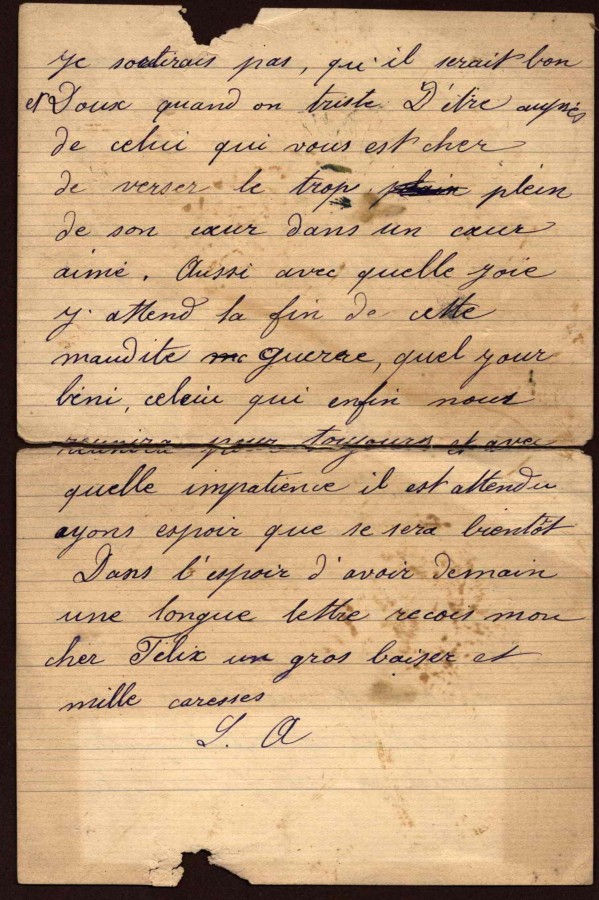 je sortirais pas, qu'il serait bon
et Doux quand on triste D'être auprès
de celui qui vous est cher
de verser le trop plein
de son cœur dans un cœur
aimé. Aussi avec quelle joie
j'attend la fin de cette
maudite guerre, quel jour
béni, celui qui enfin nous
réunira pour toujours et avec
quelle impatience il est attendu
ayons espoir que se sera bientôt
Dans l'espoir d'avoir demain
une longue lettre recois mon
cher Félix un gros baiser et
mille caresses
L. A